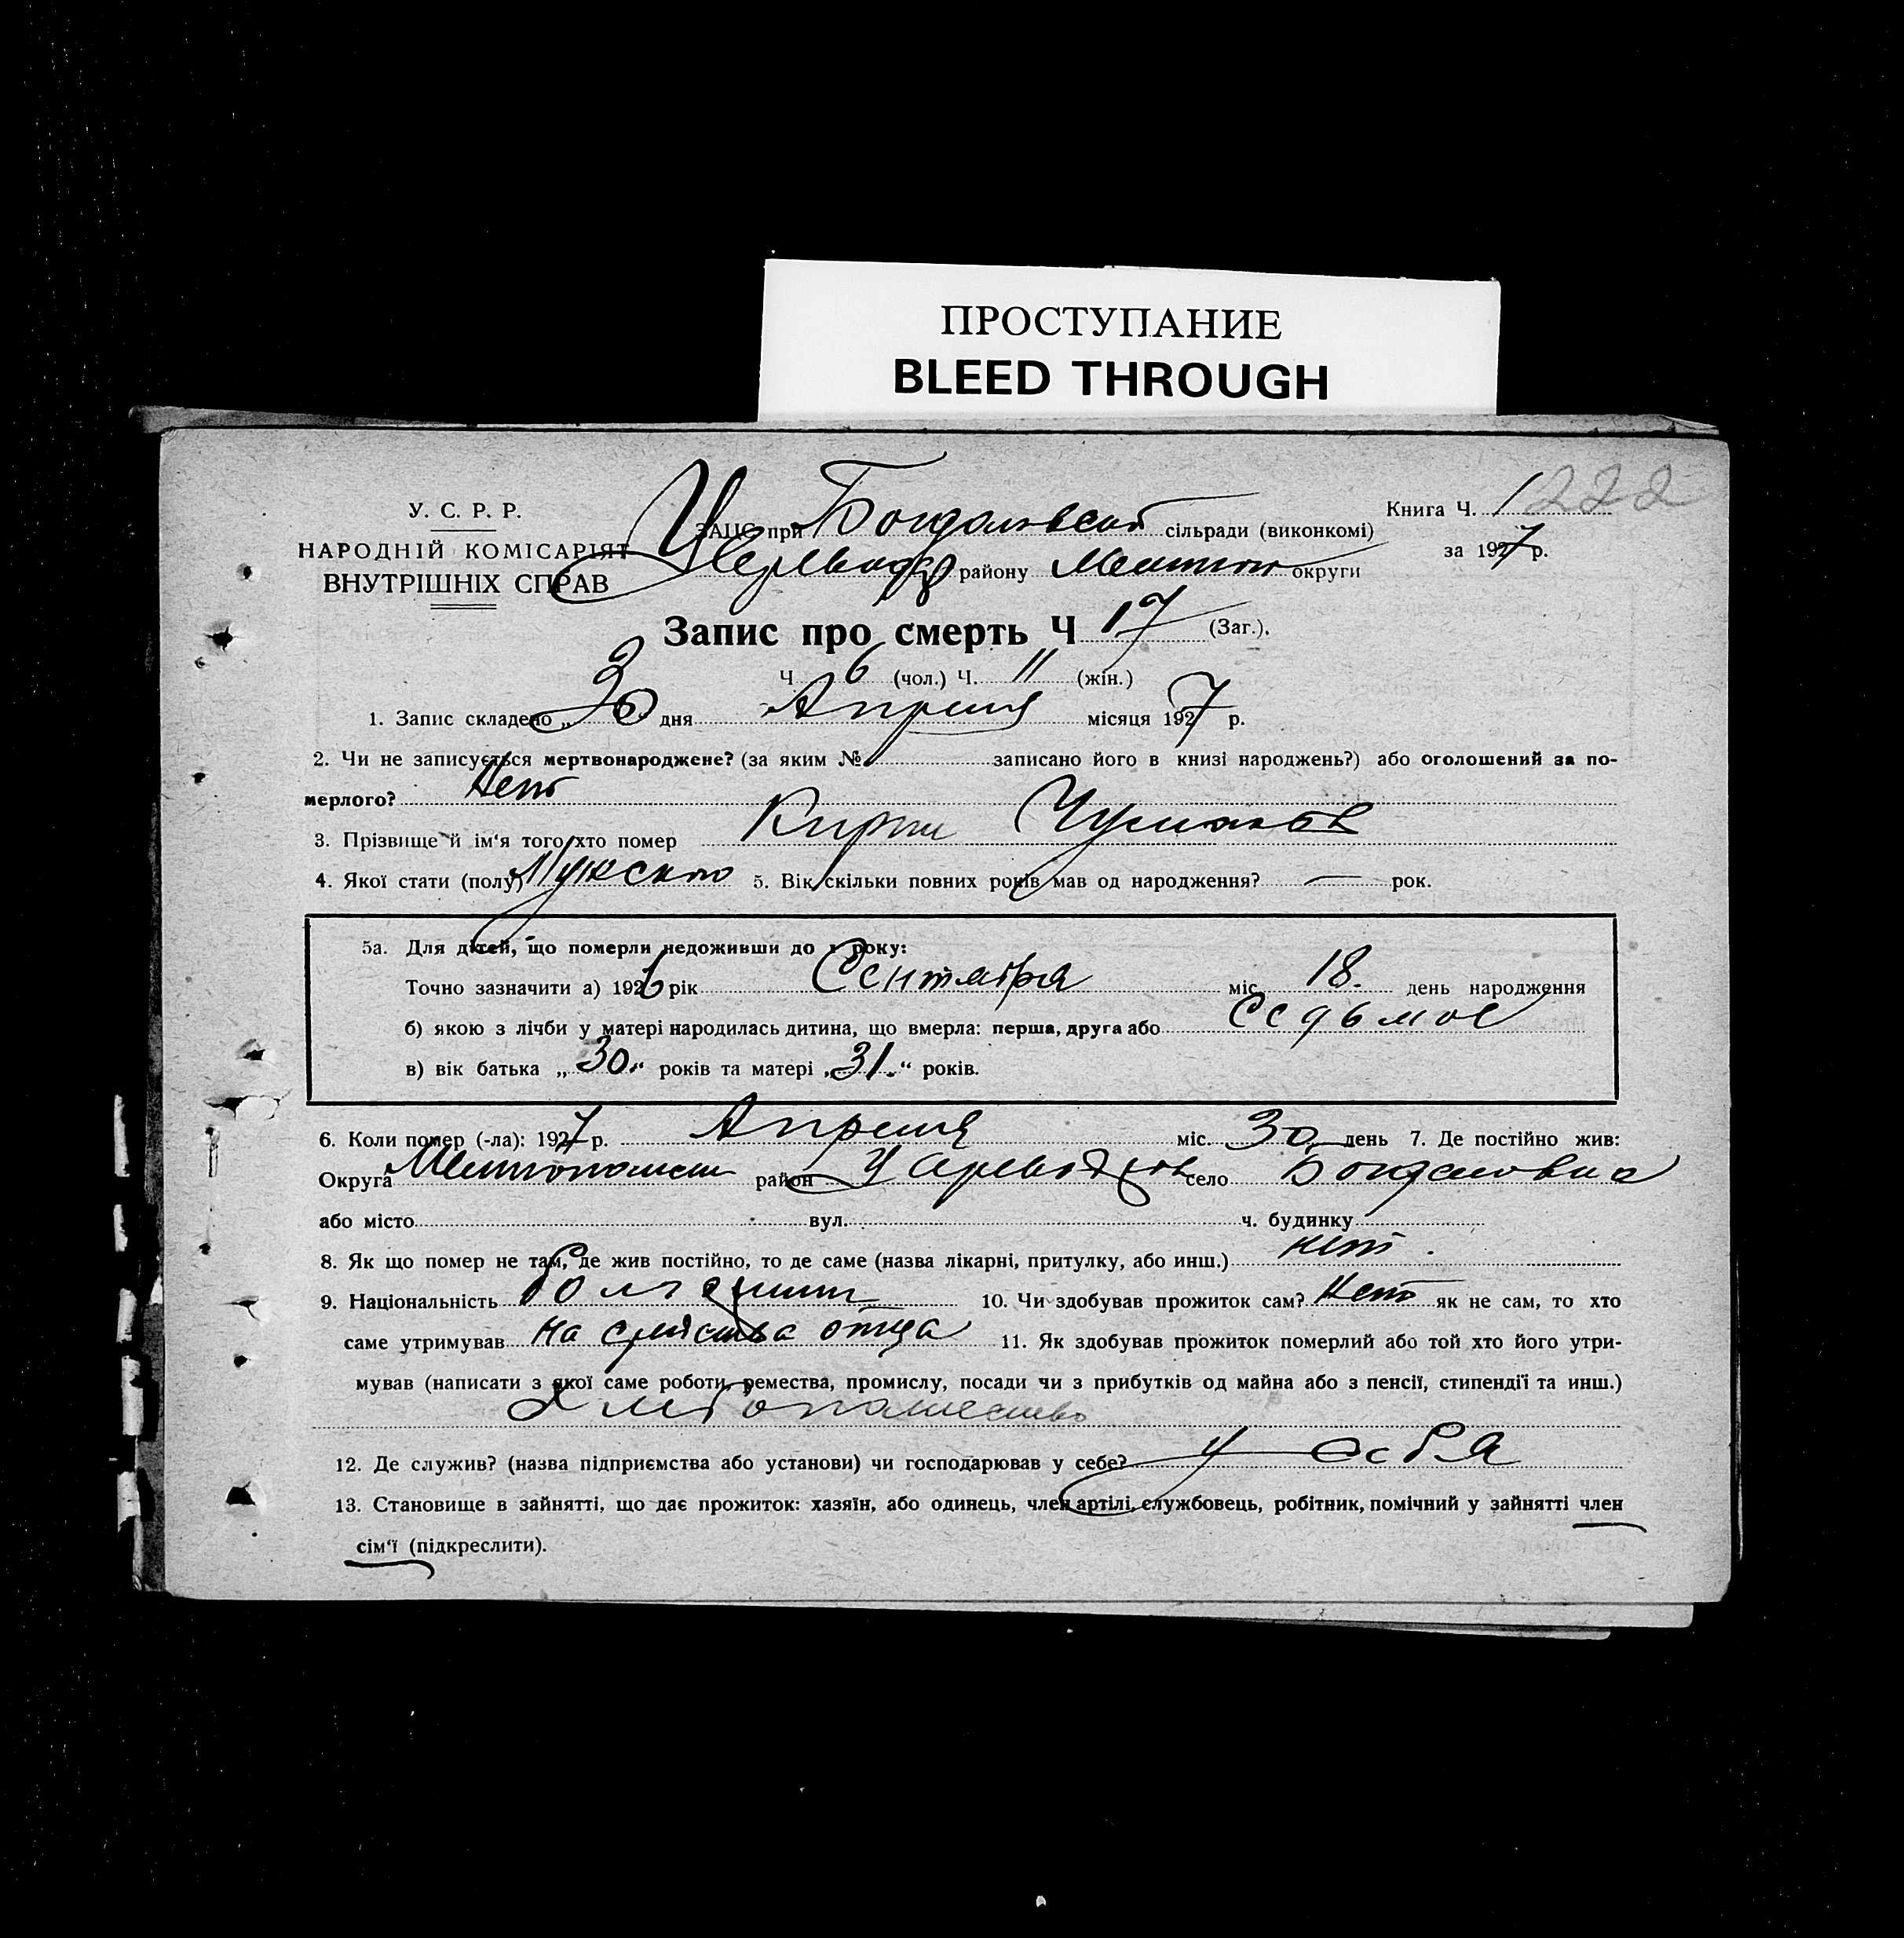 ПРОСТУПАНИЕ
BLEED THROUGH
У. С. Р. Р.
НАРОДНІЙ КОМІСАРІЯТ
ВНУТРІШНІХ СПРАВ
ЗАЦС при Богдановской сільради (виконкомі)
району округи
Книга Ч. 1 222
за 1927 р.
Запис про смерть Ч 17 (Заг.).
Ч 6 (чол.) Ч. 11 (жін.)
1. Запис складено „ 30 дня Апреля місяця 1927 р.
2. Чи не записується мертвонароджене? (за яким № записано його в книзі народжень?) або оголошений за по-
мерлого? Нет
3. Прізвище й ім'я того хто помер Чумаков
4. Якої стати (полу) Мужского 5. Вік скільки повних років мав од народження? — рок.
5а. Для дітей, що померли недоживши до 1 року:
Точно зазначити а) 1926 рік Сентября міс. 18. день народження
б) якою з лічби у матері народилась дитина, що вмерла: перша, друга або Седьмое
в) вік батька „ 30 “ років та матері „ 31. “ років.
6. Коли помер (-ла): 1927 р. Апреля міс. 30 день 7. Де постійно жив:
Округа район село Богдановка
або місто вул. ч. будинку
8. Як що помер не там, де жив постійно, то де саме (назва лікарні, притулку, або инш.) нет.
9. Національність 10. Чи здобував прожиток сам? Нет як не сам, то хто
саме утримував на средства отца 11. Як здобував прожиток померлий або той хто його утри-
мував (написати з якої саме роботи, ремества, промислу, посади чи з прибутків од майна або з пенсії, стипендії та инш.)
Хлебопашество
12. Де служив? (назва підприємства або установи) чи господарював у себе? у себя
13. Становище в зайнятті, що дає прожиток: хазяїн, або одинець, член артілі, службовець, робітник, помічний у зайнятті член
сім'ї (підкреслити).